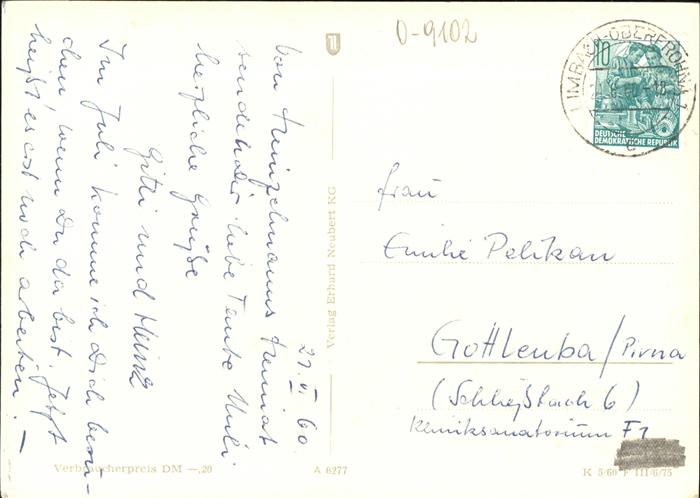 O-9102
LIMBACH-OBERFROHNA 1
10
DEUTSCHE
DEMOKRATISCHE REPUBLIK
27. VI. 60.
Von Heinzelmanns Heimat
sende ich dir, liebe Tante Milli
herzliche Grüße
Gitti und Heinz
Im Juli komme ich Dich besu-
chen wenn Du da bist. Jetzt
heißt es erst noch arbeiten. –
Verlag Erhard Neubert KG
Frau
Emilie Pelikan
Gottleuba/Pirna
(Schließbach 6)
Kliniksanatorium F 7
Verbraucherpreis DM —,20
A 6277
K 5/60 F III/6/75